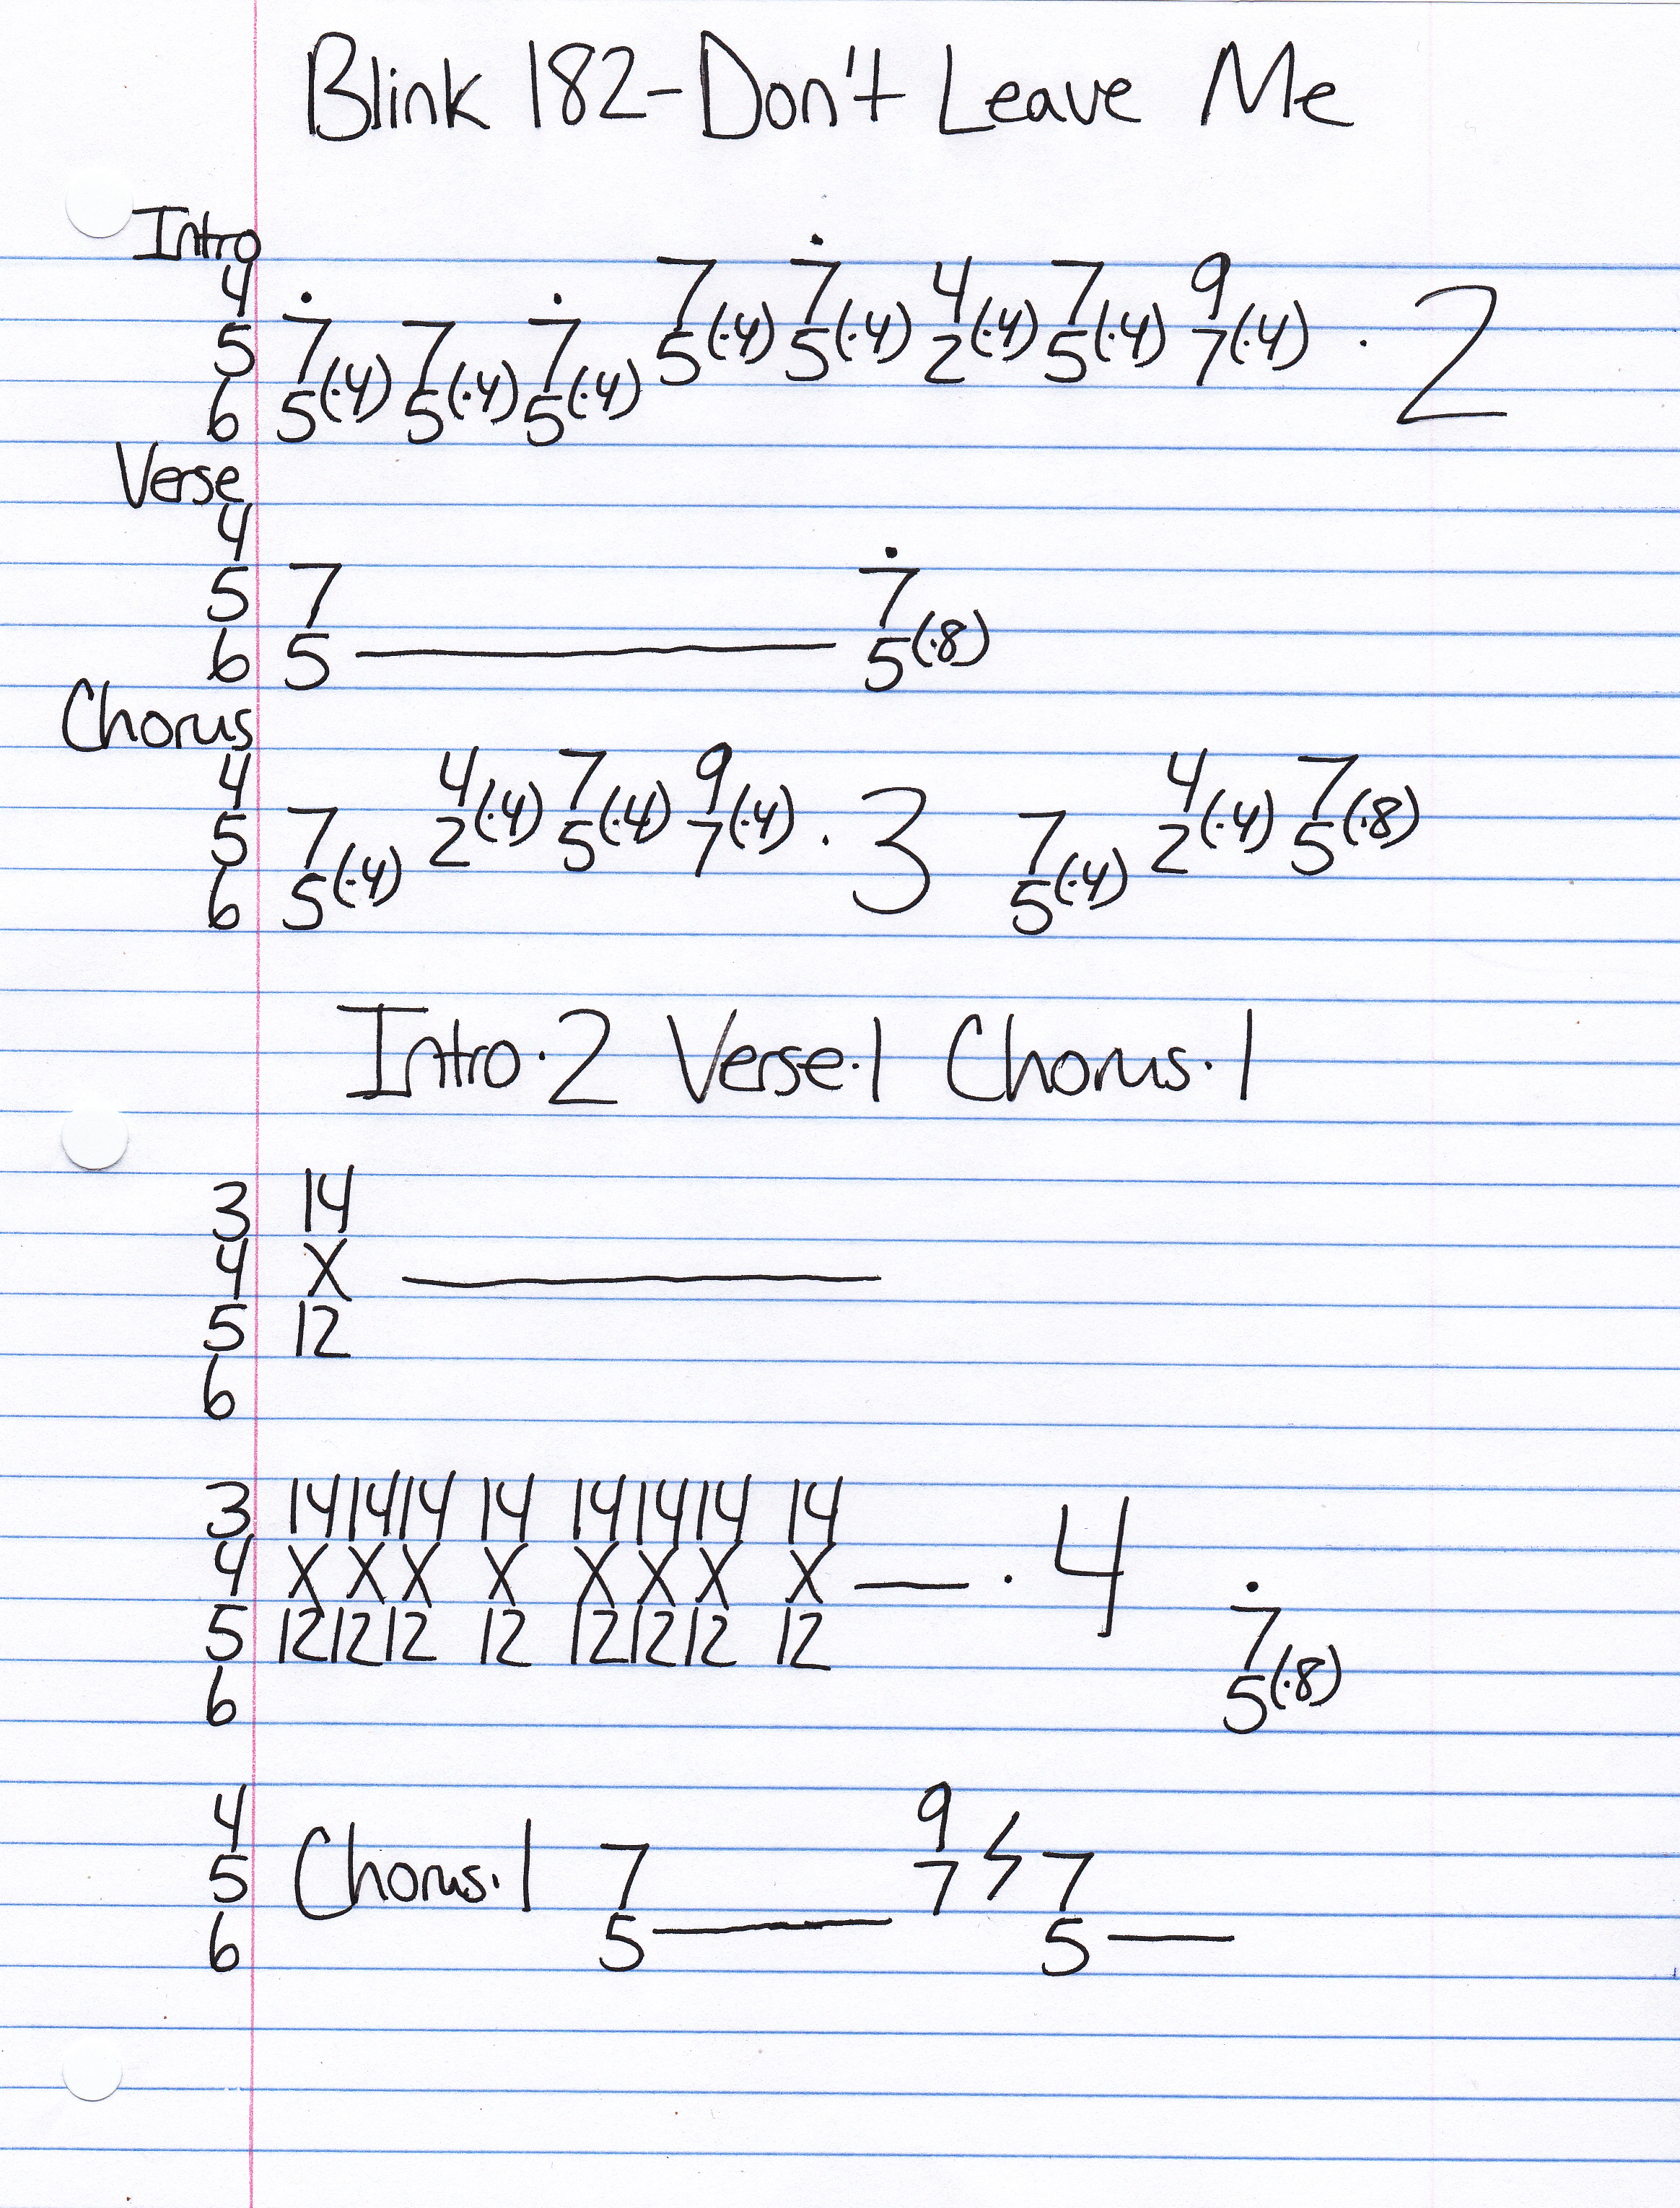 Blink 182-Don't Leave Me
Intro
4 7(·4) 7(·4) 4(·4) 7(·4) 9(·4) · 2
5 7(·4) 7(·4) 7(·4) 5 5 2 5 7
6 5 5 5
Verse
4
5 7 7
6 5 — 5(·8)
Chorus
4 4(·4) 7(·4) 9(·4) · 3 4(·4) 7(·8)
5 7(·4) 2 5 7 7(·4) 2 5
6 5 5
Intro·2 Verse·1 Chorus·1
3 14
4 X —
5 12
6
3 14 14 14 14 14 14 14 14
4 X X X X X X X X — · 4
5 12 12 12 12 12 12 12 12 7
6 5(·8)
4 9
5 Chorus·1 7 7 ϟ 7
6 5 — 5 —